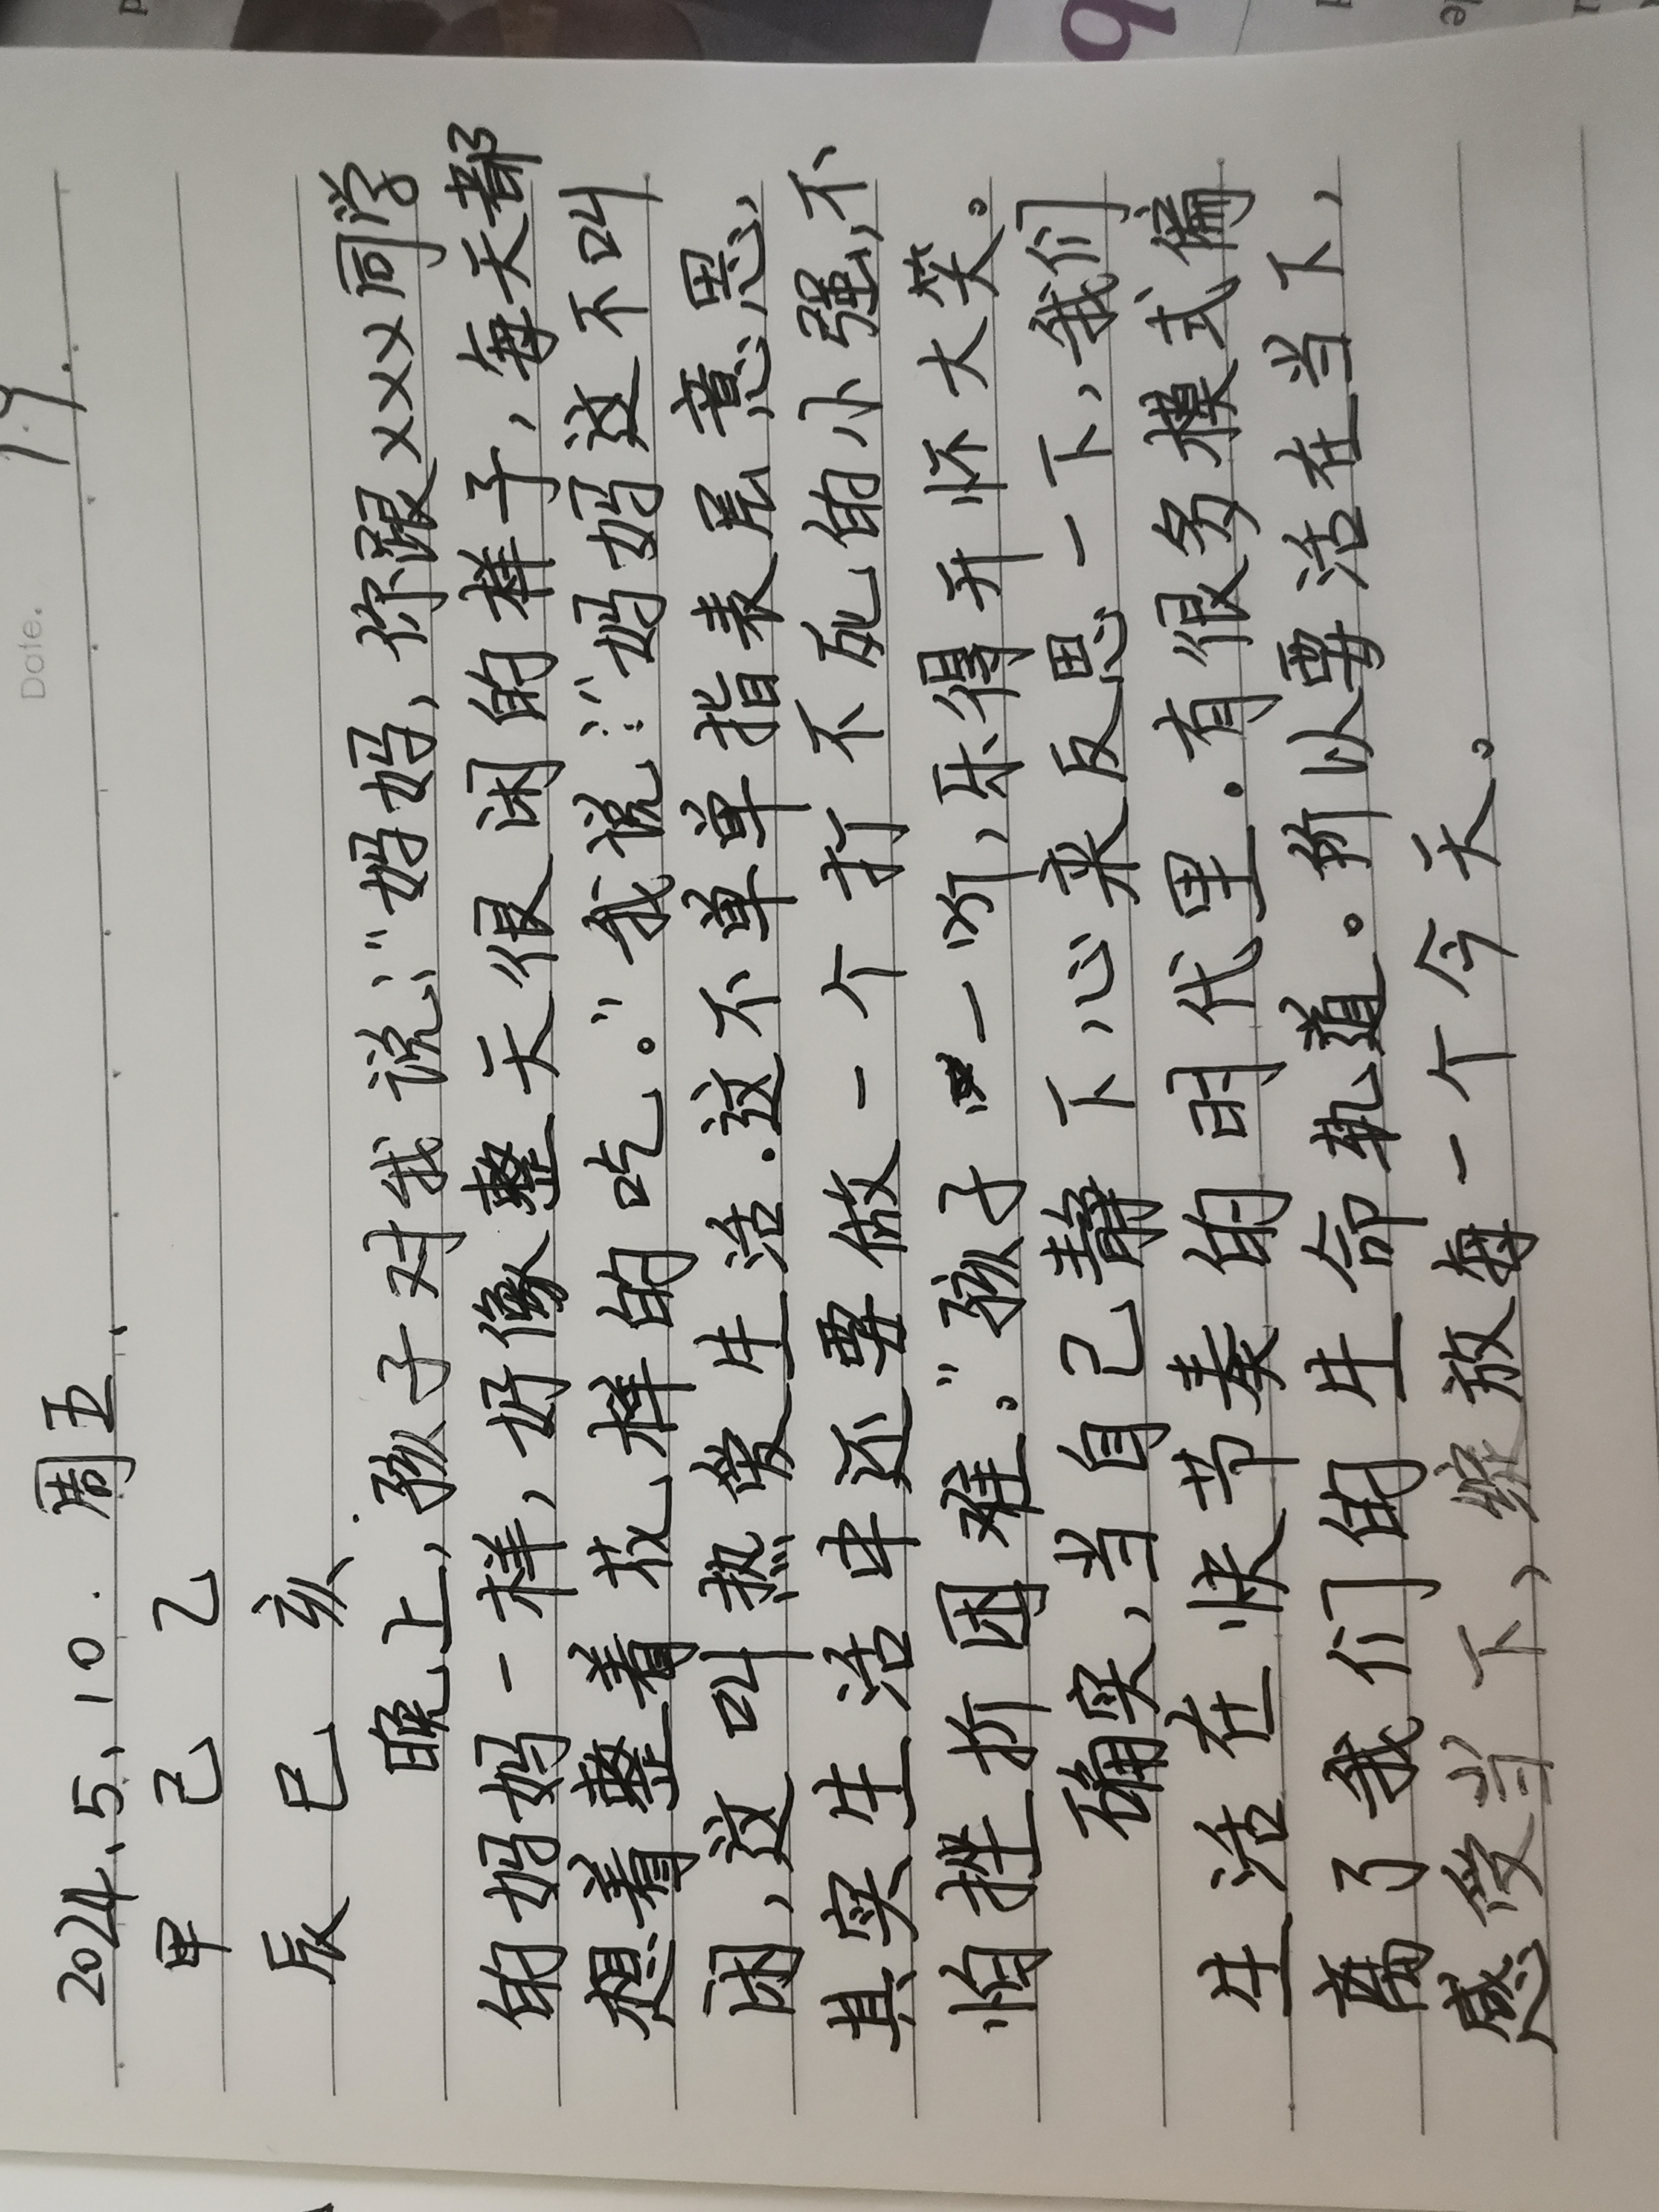 19.
Date.
2024、5、10. 周五、
甲 己 乙
辰 巳 亥
晚上，孩子对我说：“妈妈，你跟xxx同学
的妈妈一样，好像整天很闲的样子，每天都
想着整着花样的吃。”我说：“妈妈这不叫
闲，这叫热爱生活.这不单单指表层意思，
其实生活中还要做一个打不死的小强，不
怕挫折困难。”孩子一听，乐得开怀大笑。
确实，当自己静下心来反思一下，我们
生活在快节奏的时代里.有很多模式偏
离了我们的生命轨道。所以要活在当下，
感受当下，绽放每一个今天。